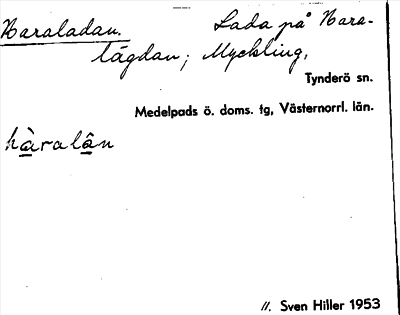 Haraladan. Lada på Hara-
tägdan; Myckling,
Tynderö sn.
Medelpads ö. doms. tg, Västernorrl. län.
hàralân
11. Sven Hiller 1953